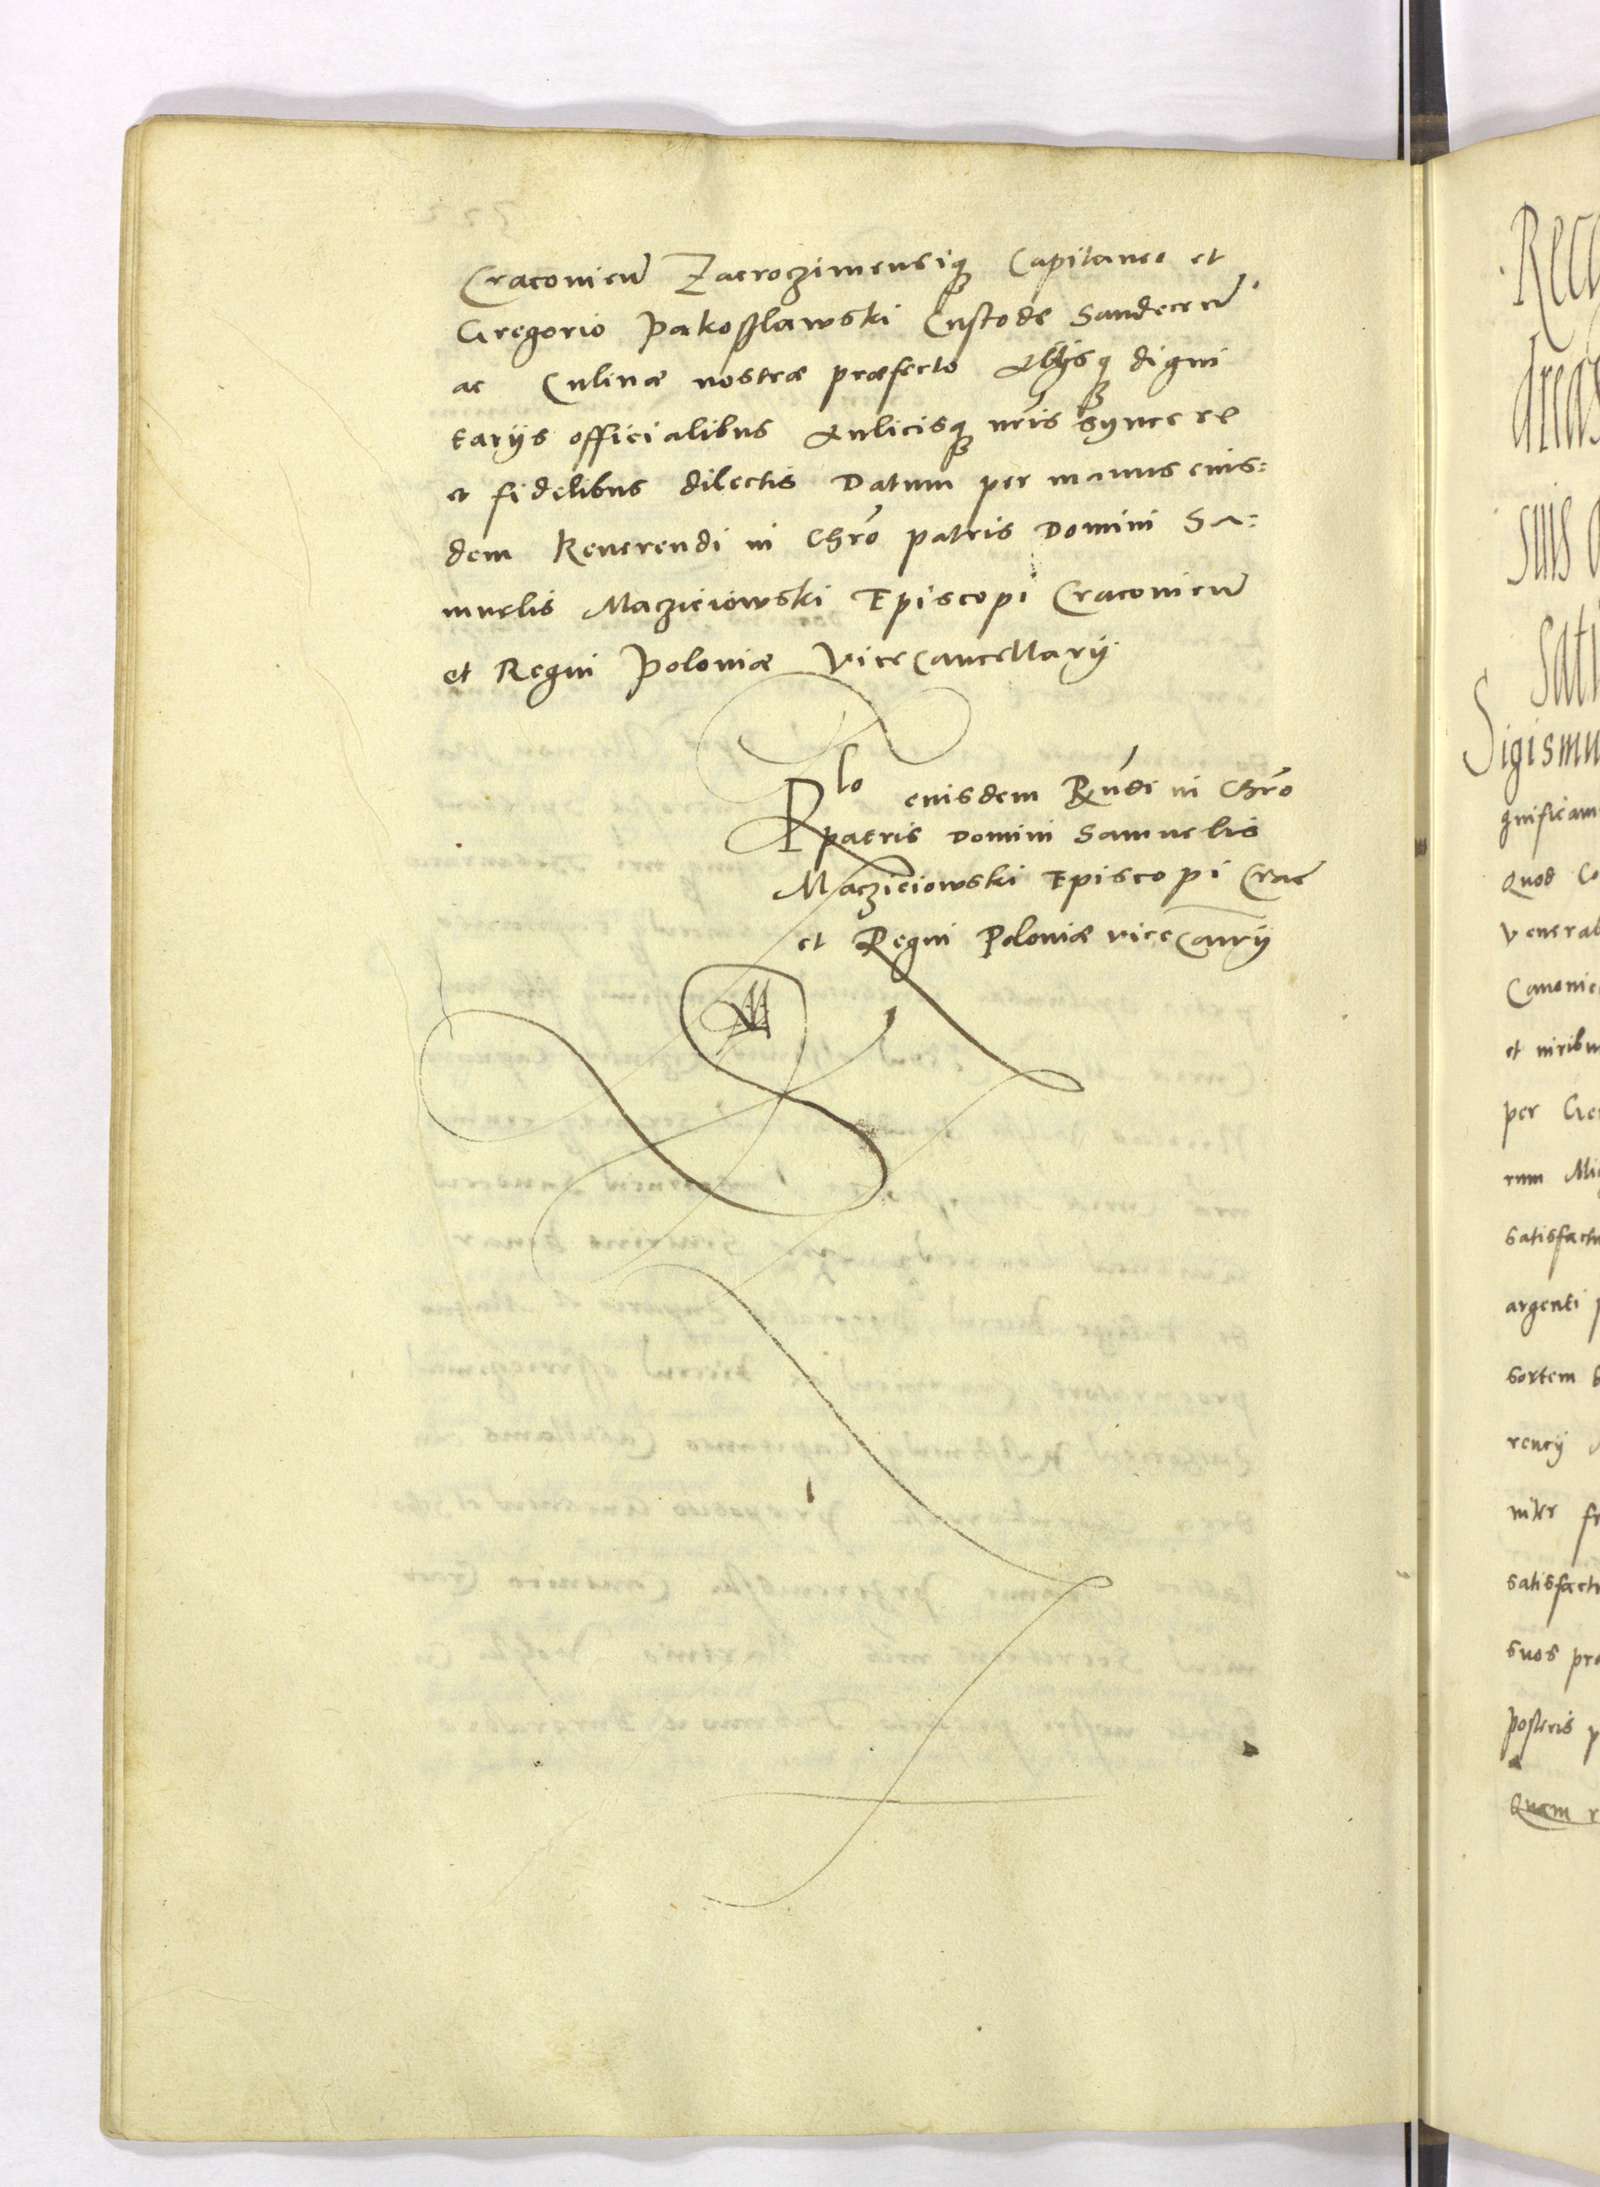 Cracovien Zacroczimensiq Capitaneo et
Gregorio Pakosslawski Custode Sandecen
ac Culinæ nostræ præfecto Alijsq digni
tarijs officialibus Aulicisq nris syncere
et fidelibus dilectis Datum per manus eius=
dem Reuerendi in Chro patris Domini Sa=
muelis Maczieiowski Episcopi Cracouien
et Regni Poloniæ ViceCancellarij
Rlo eiusdem Rndi in Chro
patris Domini Samuelis
Maczieiowski Episcopi Crac
et Regni Poloniæ viceCanrij
suis
Sigismu
gnificam
Quod Co
Venerab
Canonic
et viribu
per Ge
rum
satisfactu
argenti
sortem
inter
satisfact
suos pr
posteris
Quam